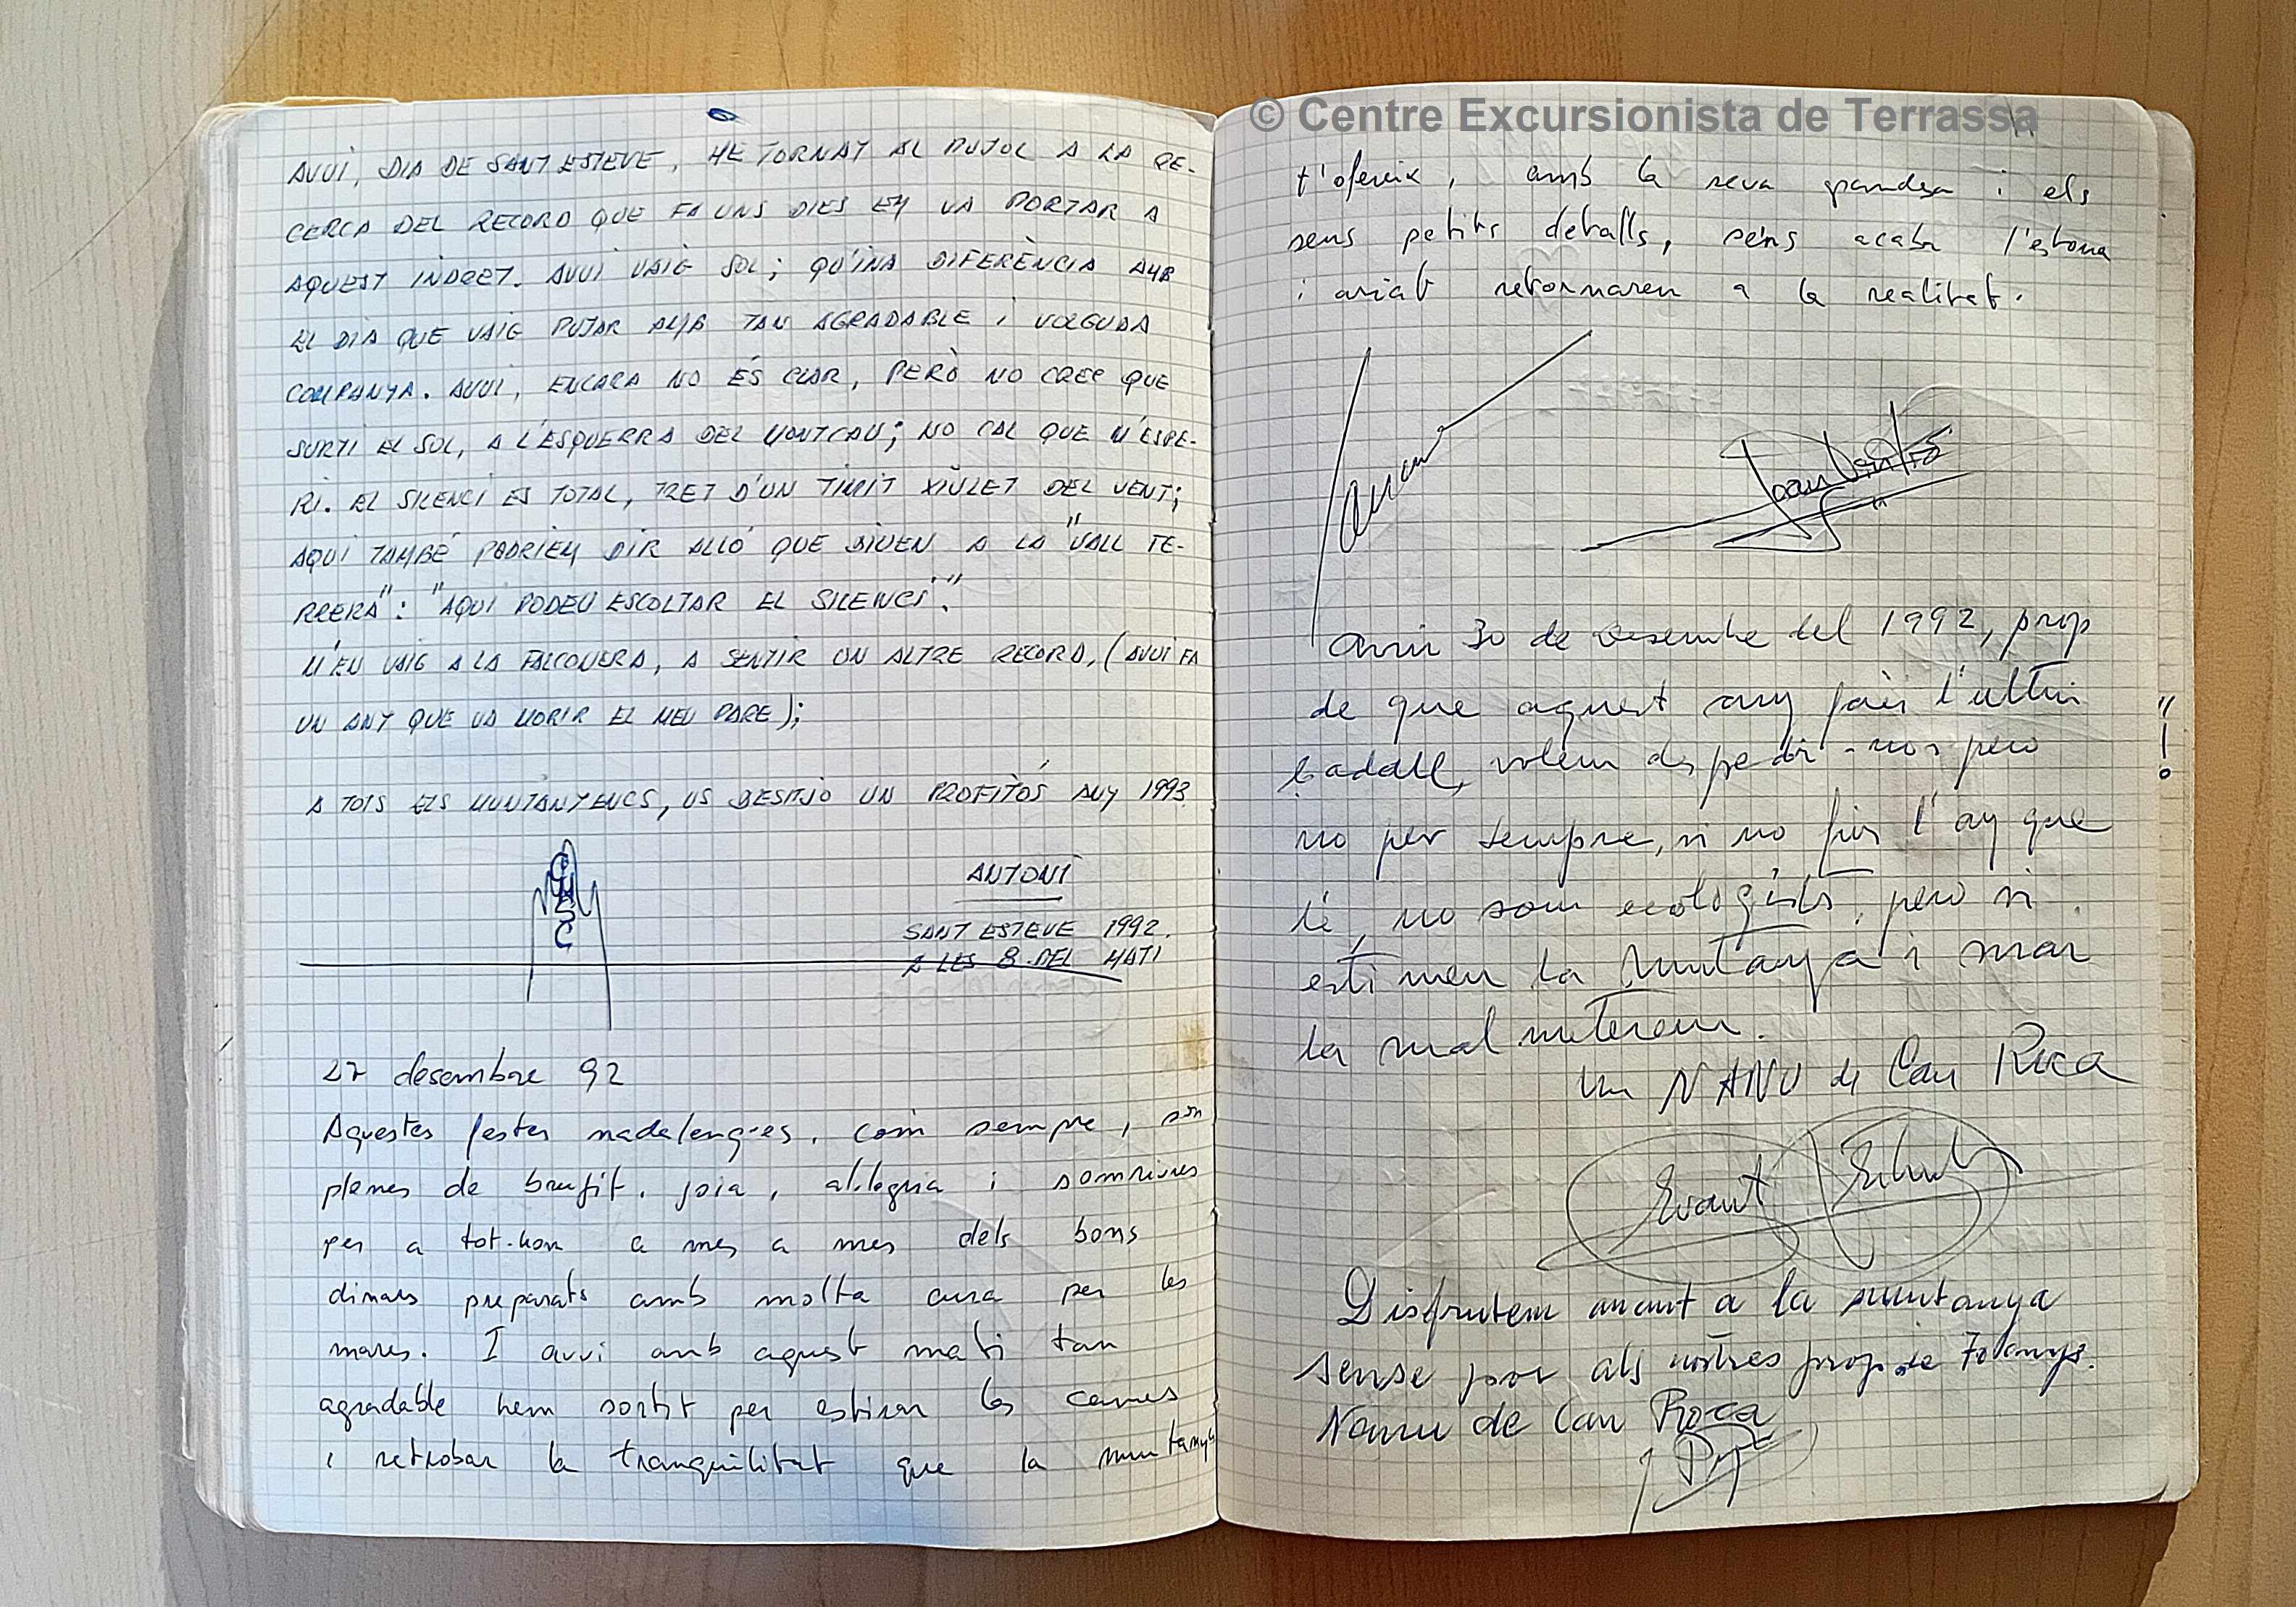 © Centre Excursionista de Terrassa
AVUI, DIA DE SANT ESTEVE, HE TORNAT AL PUJOL A LA RE-
CERCA DEL RECORD QUE FA UNS DIES EM VA PORTAR A
AQUEST INDRET. AVUI VAIG SOL; QU'INA DIFERÈNCIA AMB
EL DIA QUE VAIG PUJAR AMB TAN AGRADABLE I VOLGUDA
COMPANYA. AVUI, ENCARA NO ÉS CLAR, PERÒ NO CREC QUE
SURTI EL SOL, A L'ESQUERRA DEL MONTCAU; NO CAL QUE M'ESPE-
RI. EL SILENCI ES TOTAL, TRET D'UN TIMIT XIULET DEL VENT;
AQUÍ TAMBÉ PODRIEM DIR ALLÓ QUE DIUEN A LA "VALL FE-
RRERA": "AQUI PODEU ESCOLTAR EL SILENCI".
M'EN VAIG A LA FALCONERA, A SENTIR UN ALTRE RECORD, (AVUI FA
UN ANY QUE VA MORIR EL MEU PARE);
A TOTS ELS MUNTANYENCS, US DESITJO UN PROFITÓS ANY 1993
GMSC
ANTONI
SANT ESTEVE 1992.
A LES 8 DEL MATI
27 desembre 92
Aquestes festes nadalenques, com sempre, són
plenes de brufit, joia, al.legria i somriures
per a tot-hom a mes a mes dels bons
dinars preparats amb molta cura per les
mares. I avui amb aquest mati tan
agradable hem sortit per estirar les cames
i retrobar la tranquilitat que la muntanya
t'ofereix, amb la seva grandesa i els
seus petits detalls, sens acaba l'estona
i aviat retornarem a la realitat.
Avui 30 de Desembre del 1992, prop
de que aquest any faci l'ultim
badall, volem despedir-nos pero
no per sempre, si no fins l'any que
vé, no som ecologists, pero si
estimem la Muntanya i mai
la malmeterem. "!
Un NANU de Can Roca
Disfrutem anant a la muntanya
sense por als nostres prop de 70 anys.
Nanu de Can Roca